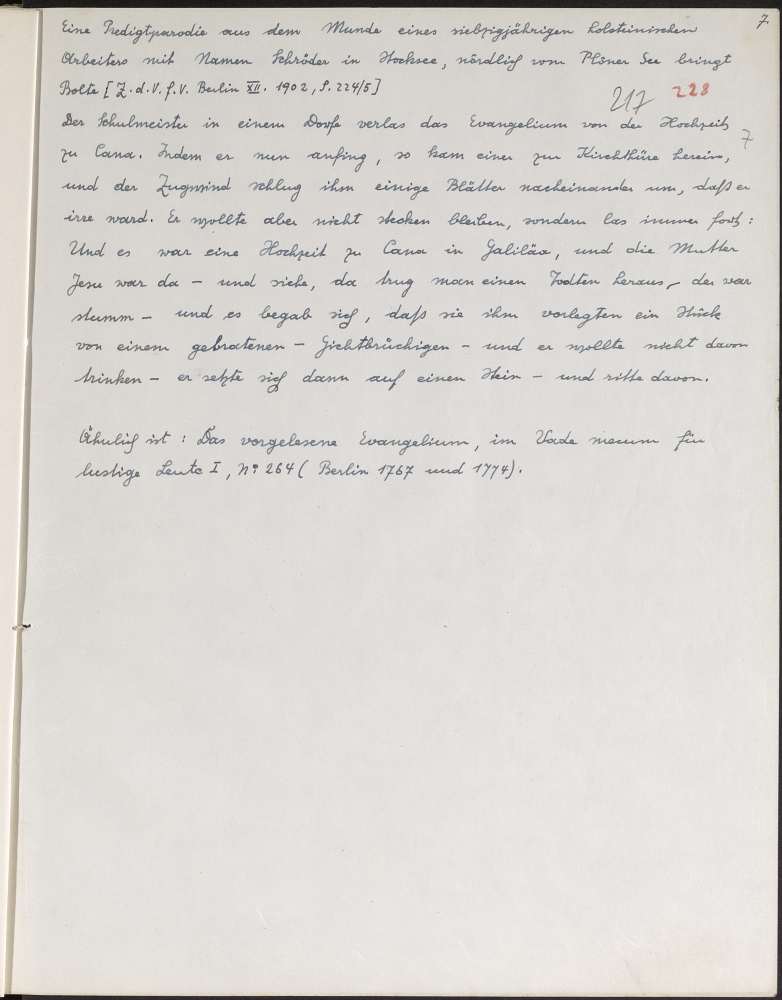 7
Eine Predigtparodie aus dem Munde eines siebzigjährigen holsteinischen
Arbeiters mit Namen Schröder in Stocksee, nördlich vom Plöner See bringt
Bolte [Z.d.V.f.V. Berlin XII. 1902, S. 224/5]
217 228
Der Schulmeister in einem Dorfe verlas das Evangelium von der Hochzeit
7
zu Cana. Indem er nun anfing, so kam einer zur Kirchthüre herein,
und der Zugwind schlug ihm einige Blätter nacheinander um, daß er
irre ward. Er wollte aber nicht stecken bleiben, sondern las immer fort:
Und es war eine Hochzeit zu Cana in Galiläa, und die Mutter
Jesu war da – und siehe, da trug man einen Todten heraus, der war
stumm – und es begab sich, daß sie ihm vorlegten ein Stück
von einem gebratenen – Gichtbrüchigen – und er wollte nicht davon
trinken – er setzte sich dann auf einen Stein – und ritte davon.
Ähnlich ist: Das vorgelesene Evangelium, im Vade mecum für
lustige Leute I, No 264 (Berlin 1767 und 1774).